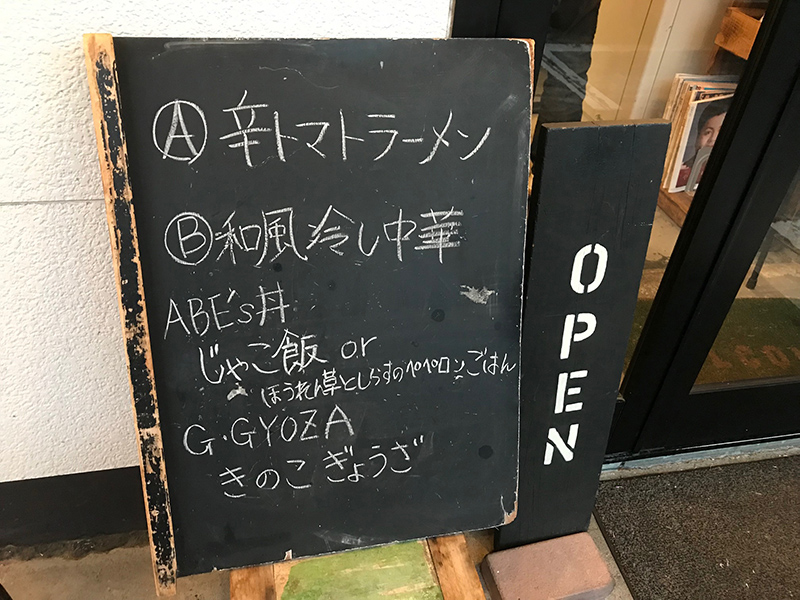 Ⓐ 辛トマトラーメン
Ⓑ 和風冷し中華
ABE's丼
じゃこ飯 or
ほうれん草としらすのペペロンごはん
G・GYOZA
きのこ ぎょうざ
OPEN